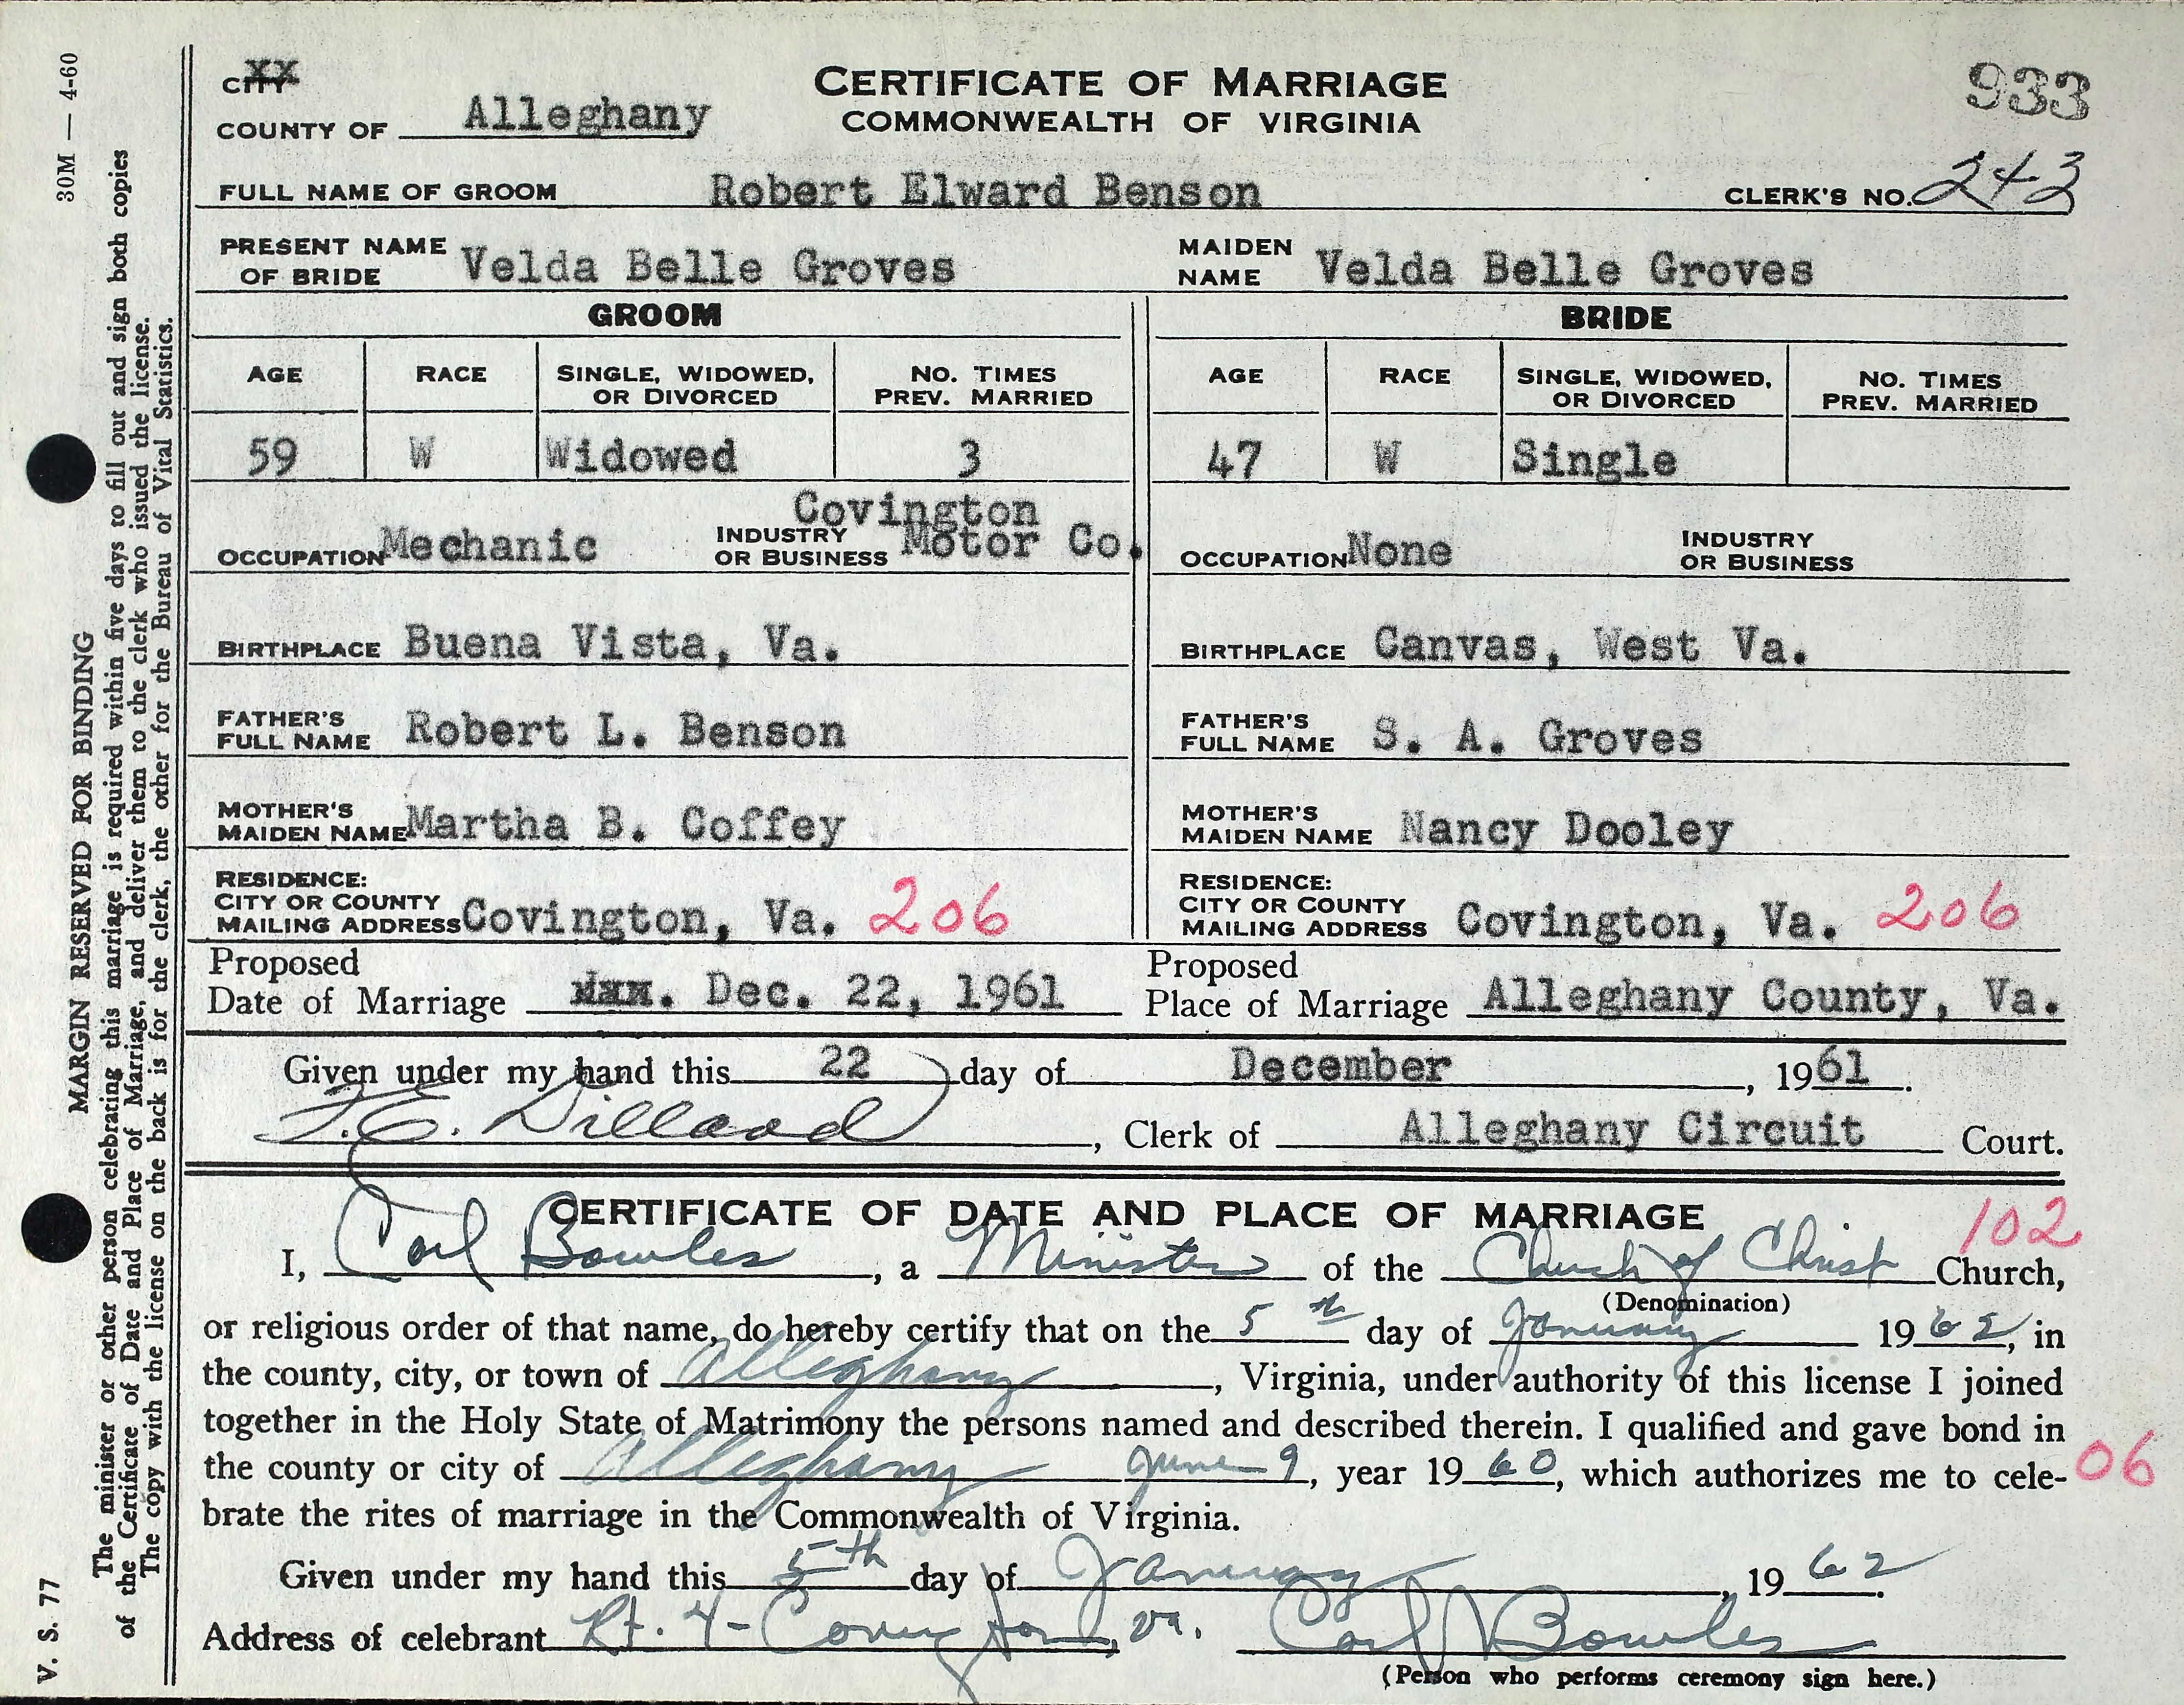 30M — 4-60
CITY XX
CERTIFICATE OF MARRIAGE
933
COUNTY OF Alleghany
COMMONWEALTH OF VIRGINIA
FULL NAME OF GROOM Robert Elward Benson CLERK'S NO. 243
PRESENT NAME OF BRIDE Velda Belle Groves MAIDEN NAME Velda Belle Groves
GROOM BRIDE
AGE RACE SINGLE, WIDOWED, OR DIVORCED NO. TIMES PREV. MARRIED AGE RACE SINGLE, WIDOWED, OR DIVORCED NO. TIMES PREV. MARRIED
59 W Widowed 3 47 W Single
OCCUPATION Mechanic INDUSTRY OR BUSINESS Covington Motor Co. OCCUPATION None INDUSTRY OR BUSINESS
BIRTHPLACE Buena Vista, Va. BIRTHPLACE Canvas, West Va.
FATHER'S FULL NAME Robert L. Benson FATHER'S FULL NAME S. A. Groves
MOTHER'S MAIDEN NAME Martha B. Coffey MOTHER'S MAIDEN NAME Nancy Dooley
RESIDENCE: CITY OR COUNTY MAILING ADDRESS Covington, Va. 206 RESIDENCE: CITY OR COUNTY MAILING ADDRESS Covington, Va. 206
Proposed Date of Marriage Dec. 22, 1961 Proposed Place of Marriage Alleghany County, Va.
Given under my hand this 22 day of December, 1961.
F. E. Dillard, Clerk of Alleghany Circuit Court.
CERTIFICATE OF DATE AND PLACE OF MARRIAGE 102
I, Carl Bowles, a Minister of the Church of Christ Church,
(Denomination)
or religious order of that name, do hereby certify that on the 5th day of January 1962, in
the county, city, or town of Alleghany, Virginia, under authority of this license I joined
together in the Holy State of Matrimony the persons named and described therein. I qualified and gave bond in
the county or city of Alleghany June 9, year 1960, which authorizes me to cele- 06
brate the rites of marriage in the Commonwealth of Virginia.
Given under my hand this 5th day of January, 1962.
Address of celebrant Rt. 4 - Covington, Va. Carl Bowles
(Person who performs ceremony sign here.)
V. S. 77
MARGIN RESERVED FOR BINDING
The minister or other person celebrating this marriage is required within five days to fill out and sign both copies
of the Certificate of Date and Place of Marriage, and deliver them to the clerk who issued the license.
The copy with the license on the back is for the clerk, the other for the Bureau of Vital Statistics.